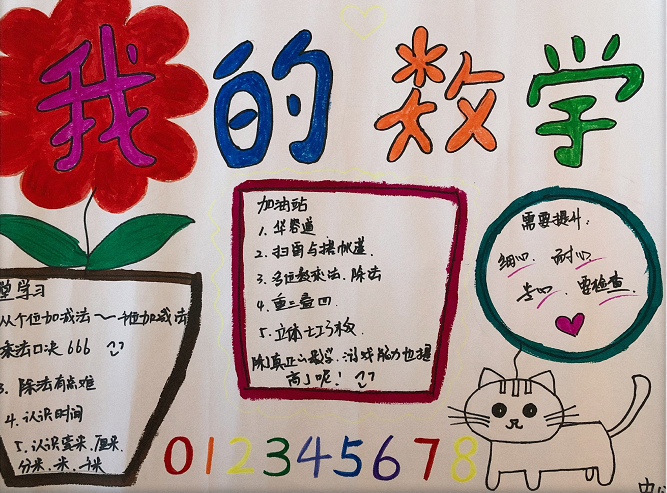 我的数学
加油站
1. 华容道
2. 扫雷与
3. 多位数乘法、除法
4. 重三叠四
5. 立体七巧板
除了真正的数学,游戏能力也提
高了呢!
需要提升:
细心 耐心
专心、要检查
学习
从个位加减法~千位加减法
乘法口决 666
3. 除法有点难
4. 认识时间
5. 认识毫米、厘米
分米、米、千米
012345678